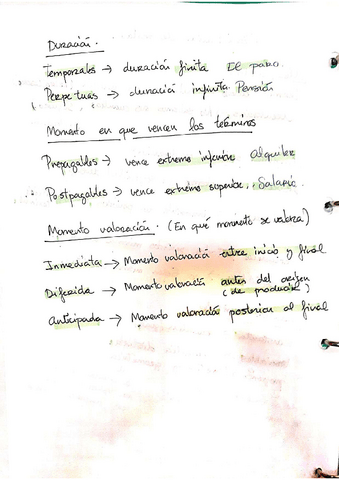 Duración.
Temporales → duración finita El paro.
Perpetuas → duración infinita Pensión
Momento en que vencen los términos
Prepagables → vence extremo inferior Alquiler
Postpagables → vence extremo superior, Salario
Momento valoración. (En qué momento se valora)
Inmediata → Momento valoración entre inicio y final
Diferida → Momento valoración antes del origen
(de producir)
Anticipada → Momento valoración posterior al final